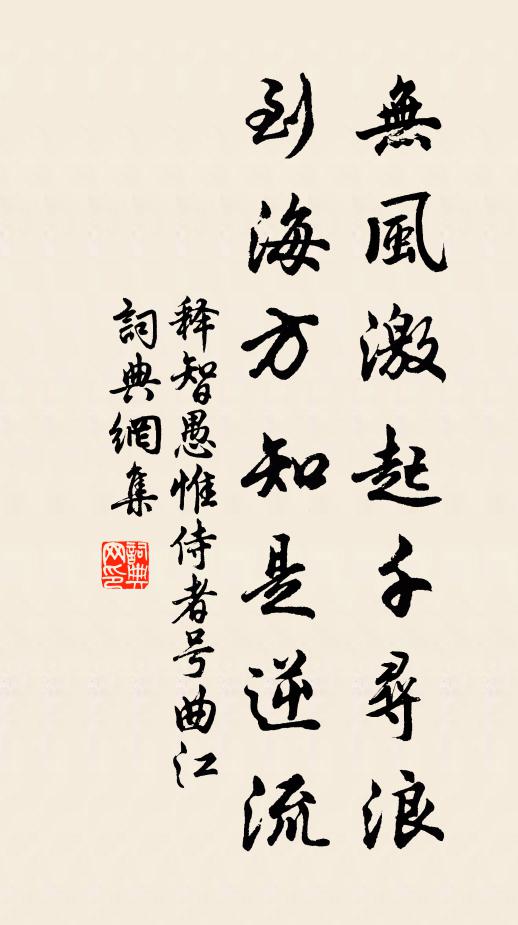 無風激起千尋浪
到海方知是逆流
释智愚惟侍者号曲江
詞典網集
詞典网印